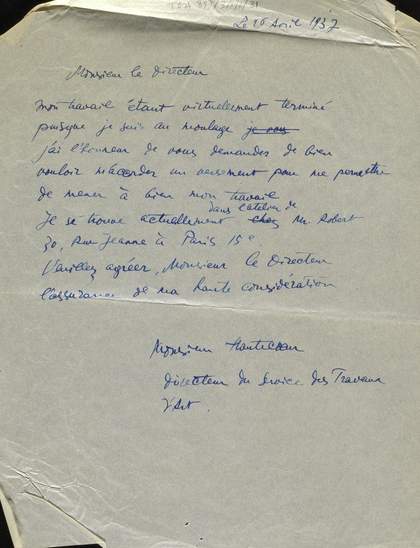 Le 26 Avril 1937
Monsieur le Directeur
Mon travail étant virtuellement terminé
puisque je suis au moulage je vous
j'ai l'honneur de vous demander de bien
vouloir m'accorder un versement pour me permettre
de mener à bien mon travail
dans l'atelier de
Je se trouve actuellement chez Mr. Robert
30, Rue Jeanne à Paris 15e
Veuillez agréer, Monsieur le Directeur
l'assurance de ma haute considération
Monsieur Hautecœur
Directeur du Service des Travaux
d'Art.